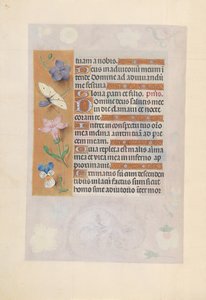 tuam a nobis.
Deus in adiutorium meum in
tende Domine ad adiuvandū
me festina
Gloria patri et filio,
Domine deus salutis mee
in die clamavi et nocte
coram te.
Intret in conspectu tuo ora
tio mea inclina aurem tuā ad prece
meam
Quia repleta est malis aīma
mea et vita mea in inferno ap
propinquavit.
Estimatus sum cum descenden
tibus in lacū factus sum sicut
homo sine adiutorio inter mor